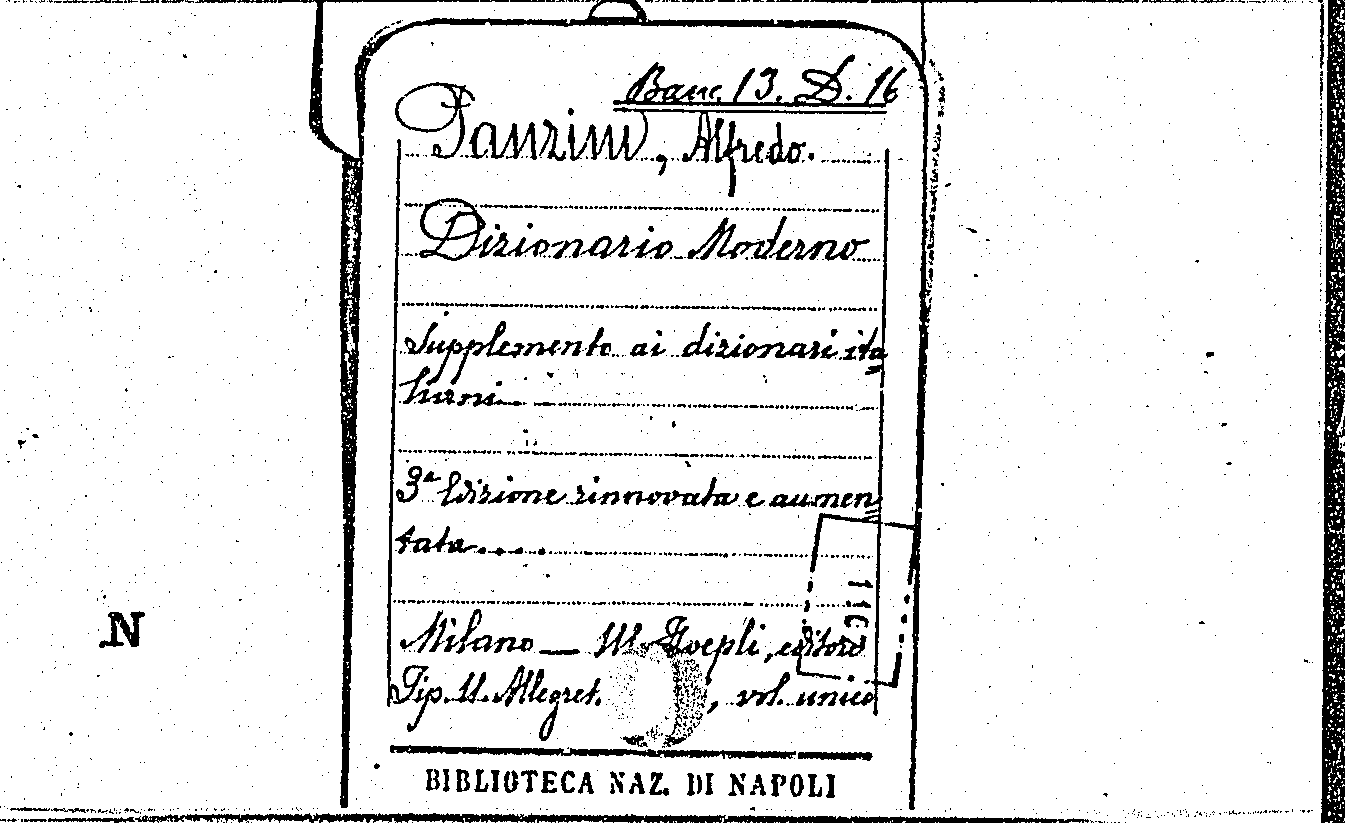 Banc. 13. D. 16
Panzini, Alfredo.
Dizionario Moderno
Supplemento ai dizionari ita
liani
3ª Edizione rinnovata e aumen
tata....
Milano — U. Hoepli, editore
Tip. U. Allegret. , vol. unico
N
BIBLIOTECA NAZ. DI NAPOLI